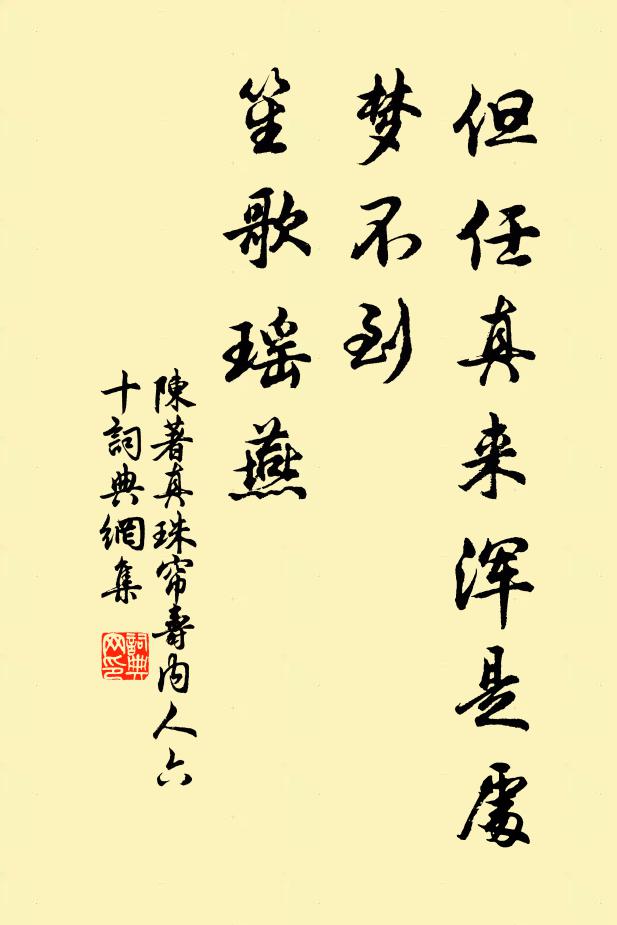 但任真来浑是處
梦不到
笙歌瑶燕
陳著真珠帘壽内人六
十詞典網集
詞典
网印